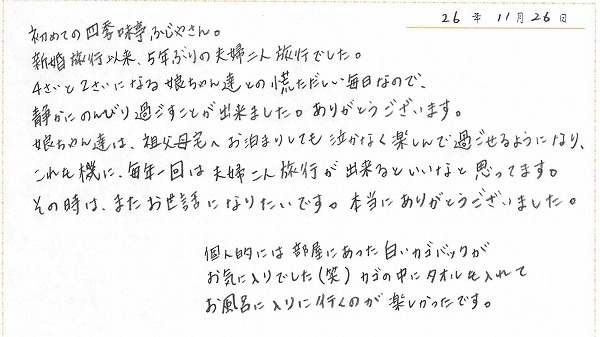 26年 11月26日
初めての四季味亭ふじやさん。
新婚旅行以来、5年ぶりの夫婦二人旅行でした。
4さいと2さいになる娘ちゃん達との慌ただしい毎日なので、
静かにのんびり過ごすことが出来ました。ありがとうございます。
娘ちゃん達は、祖父母宅へお泊まりしても泣かなく楽しんで過ごせるようになり、
これを機に、毎年一回は夫婦二人旅行が出来るといいなと思ってます。
その時は、またお世話になりたいです。本当にありがとうございました。
個人的には部屋にあった白いカゴバックが
お気に入りでした(笑)カゴの中にタオルを入れて
お風呂に入りに行くのが楽しかったです。